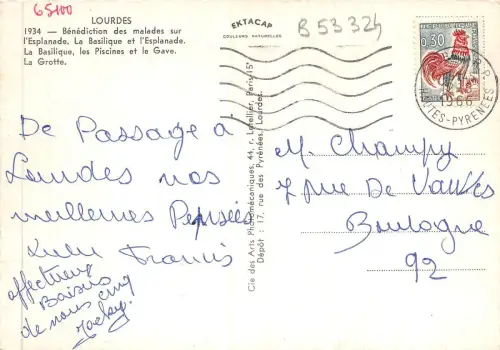 65100
LOURDES
1934 — Bénédiction des malades sur
l'Esplanade. La Basilique et l'Esplanade.
La Basilique, les Piscines et le Gave.
La Grotte.
EKTACAP
COULEURS NATURELLES
B 53324
0,30
1966
HTES-PYRENEES
Cie des Arts Photomécaniques, 44, r. Letellier, Paris-15e
Dépôt : 17, rue des Pyrénées, Lourdes.
De Passage a
Lourdes nos
meilleures Pensées
Lulu Francis
affectueux
Baisers
de nous cinq
Jacky.
M. Champy
7 rue De Vauves
Boulogne
92